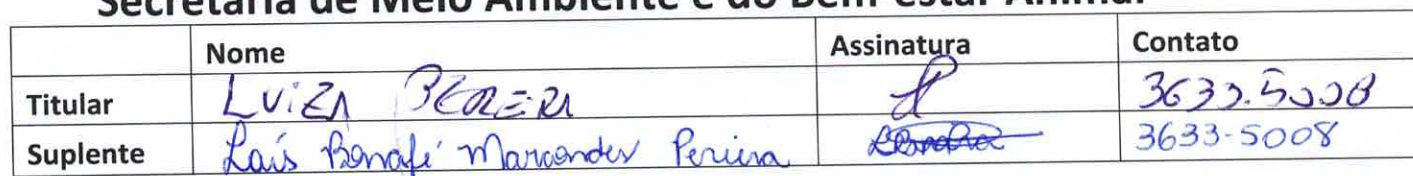 Secretaria de Meio Ambiente e do Bem-estar Animal
Nome Assinatura Contato
Titular LUIZA 3633.5008
Suplente Laís Bonafé Marcondes Pereira 3633-5008